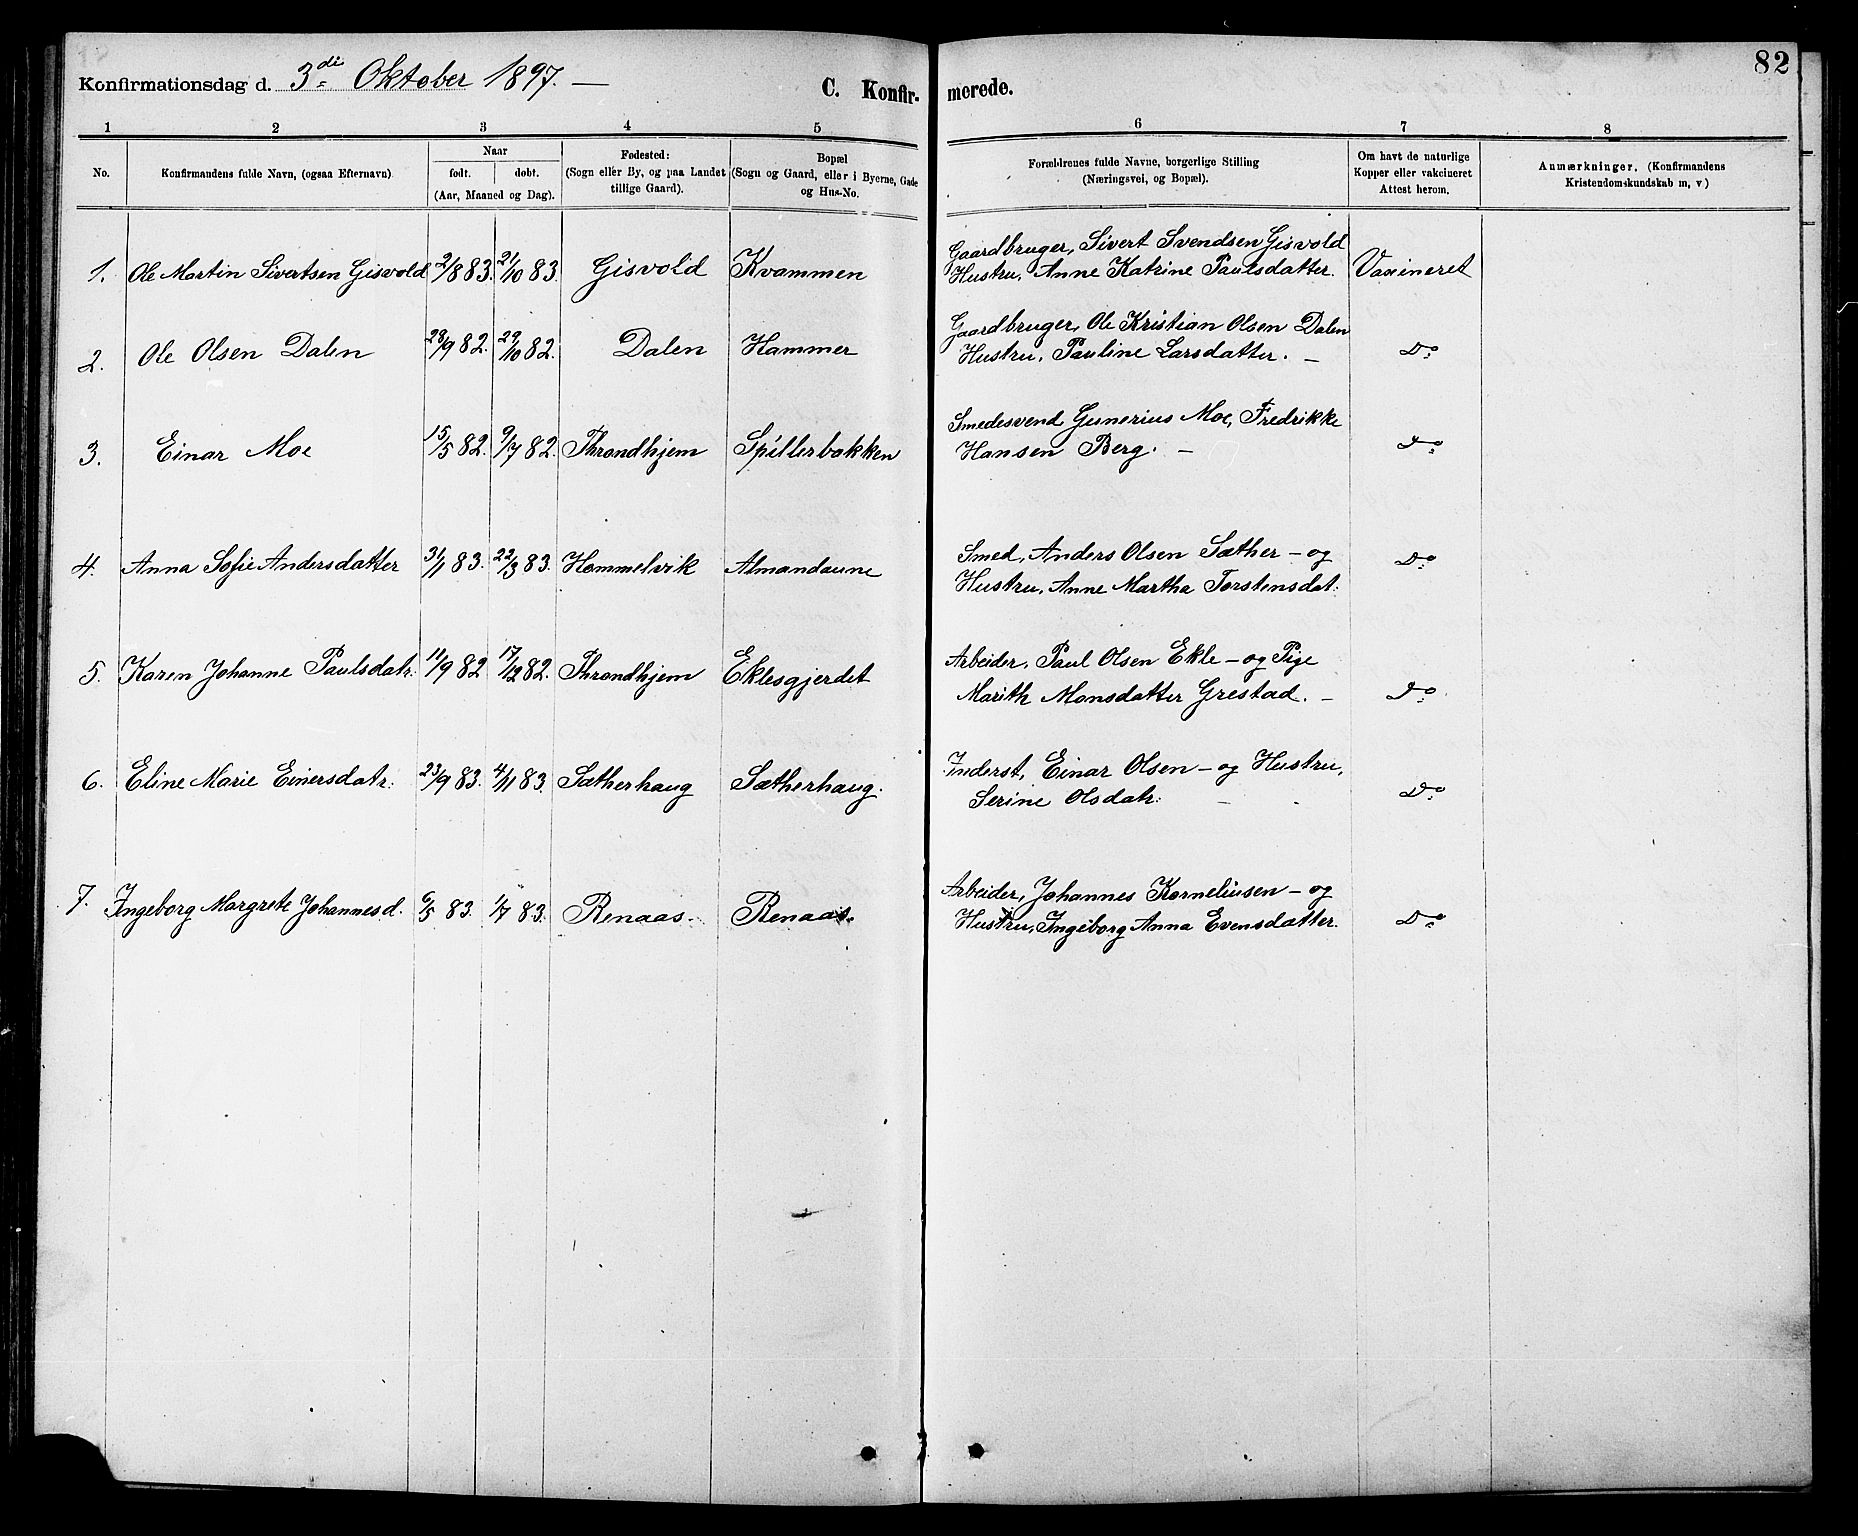 82
Konfirmationsdag d. 3die Oktober 1897. —
C. Konfir- merede.
1 2 3 4 5 6 7 8
No.
Konfirmandens fulde Navn, (ogsaa Efternavn)
Naar
født. døbt.
(Aar, Maaned og Dag).
Fødested:
(Sogn eller By, og paa Landet
tillige Gaard).
Bopæl
(Sogn og Gaard, eller i Byerne, Gade
og Hus-No.
Forældrenes fulde Navne, borgerlige Stilling
(Næringsvei, og Bopæl).
Om havt de naturlige
Kopper eller vakcineret
Attest herom.
Anmærkninger. (Konfirmandens
Kristendomskundskab m, v)
Gaardbruger, Sivert Svendsen Gisvold
1. Ole Martin Sivertsen Gisvold 2/8 83. 21/10 83. Gisvold Kvammen Hustru, Anne Katrine Paulsdatter. Vaxineret
Gaardbruger, Ole Kristian Olsen Dalen
2. Ole Olsen Dalen 28/9 82. 29/10 82. Dalen Hammer Hustru, Pauline Larsdatter. — Do
Smedesvend Gunerius Moe, Fredrikke
3. Einar Moe 15/5 82. 9/7 82. Throndhjem Spillerbakken Hansen Berg. — Do
Smed, Anders Olsen Sæther — og
4. Anna Sofie Andersdatter 31/1 83. 22/3 83. Hommelvik Almandaune Hustru, Anne Martha Torstensdat. Do
Arbeider, Paul Olsen Ekle — og Pige
5. Karen Johanne Paulsdatr. 11/9 82 17/12 82. Throndhjem Eklesgjerdet Marith Monsdatter Grestad. — Do
Inderst, Einar Olsen — og Hustru,
6. Eline Marie Einersdatr. 23/9 83. 4/11 83. Sætherhaug Sætherhaug. Serine Olsdatr. — Do
Arbeider, Johannes Korneliusen — og
7. Ingeborg Margrete Johannesd. 6/5 83. 1/7 83. Renaas. Renaas. Hustru, Ingeborg Anna Evensdatter. Do